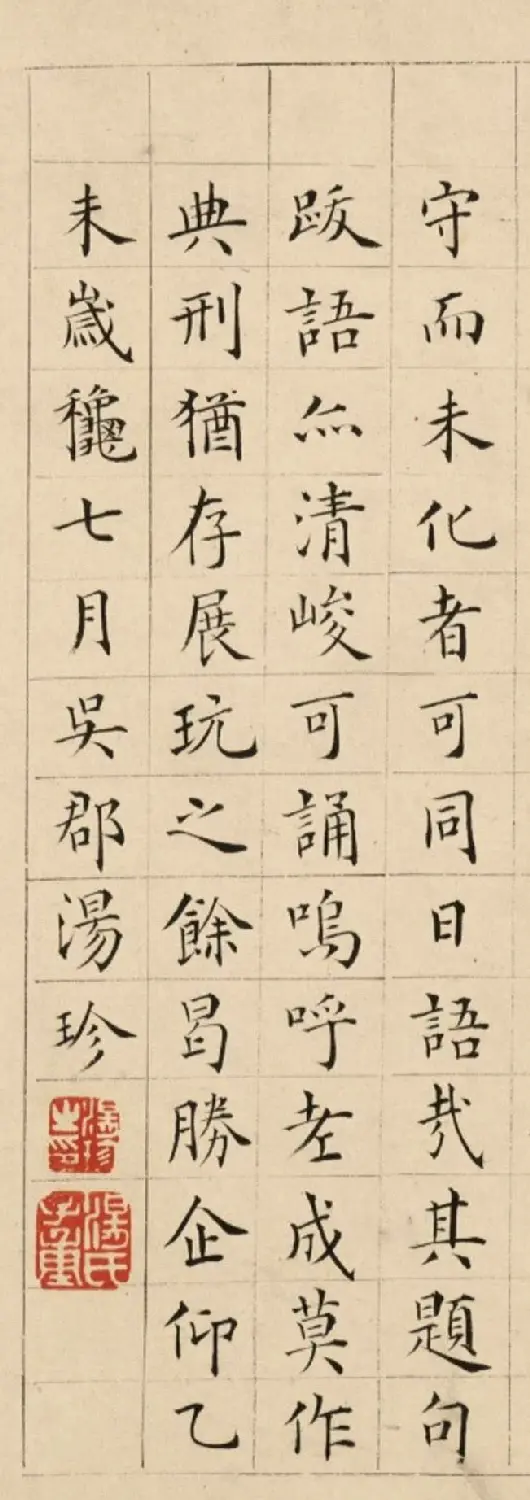 守而未化者可同日語㢤其題句
跋語亦清峻可誦嗚呼老成莫作
典刑猶存展玩之餘曷勝企仰乙
未歲龝七月吳郡湯珍
湯珍之印
湯氏子重